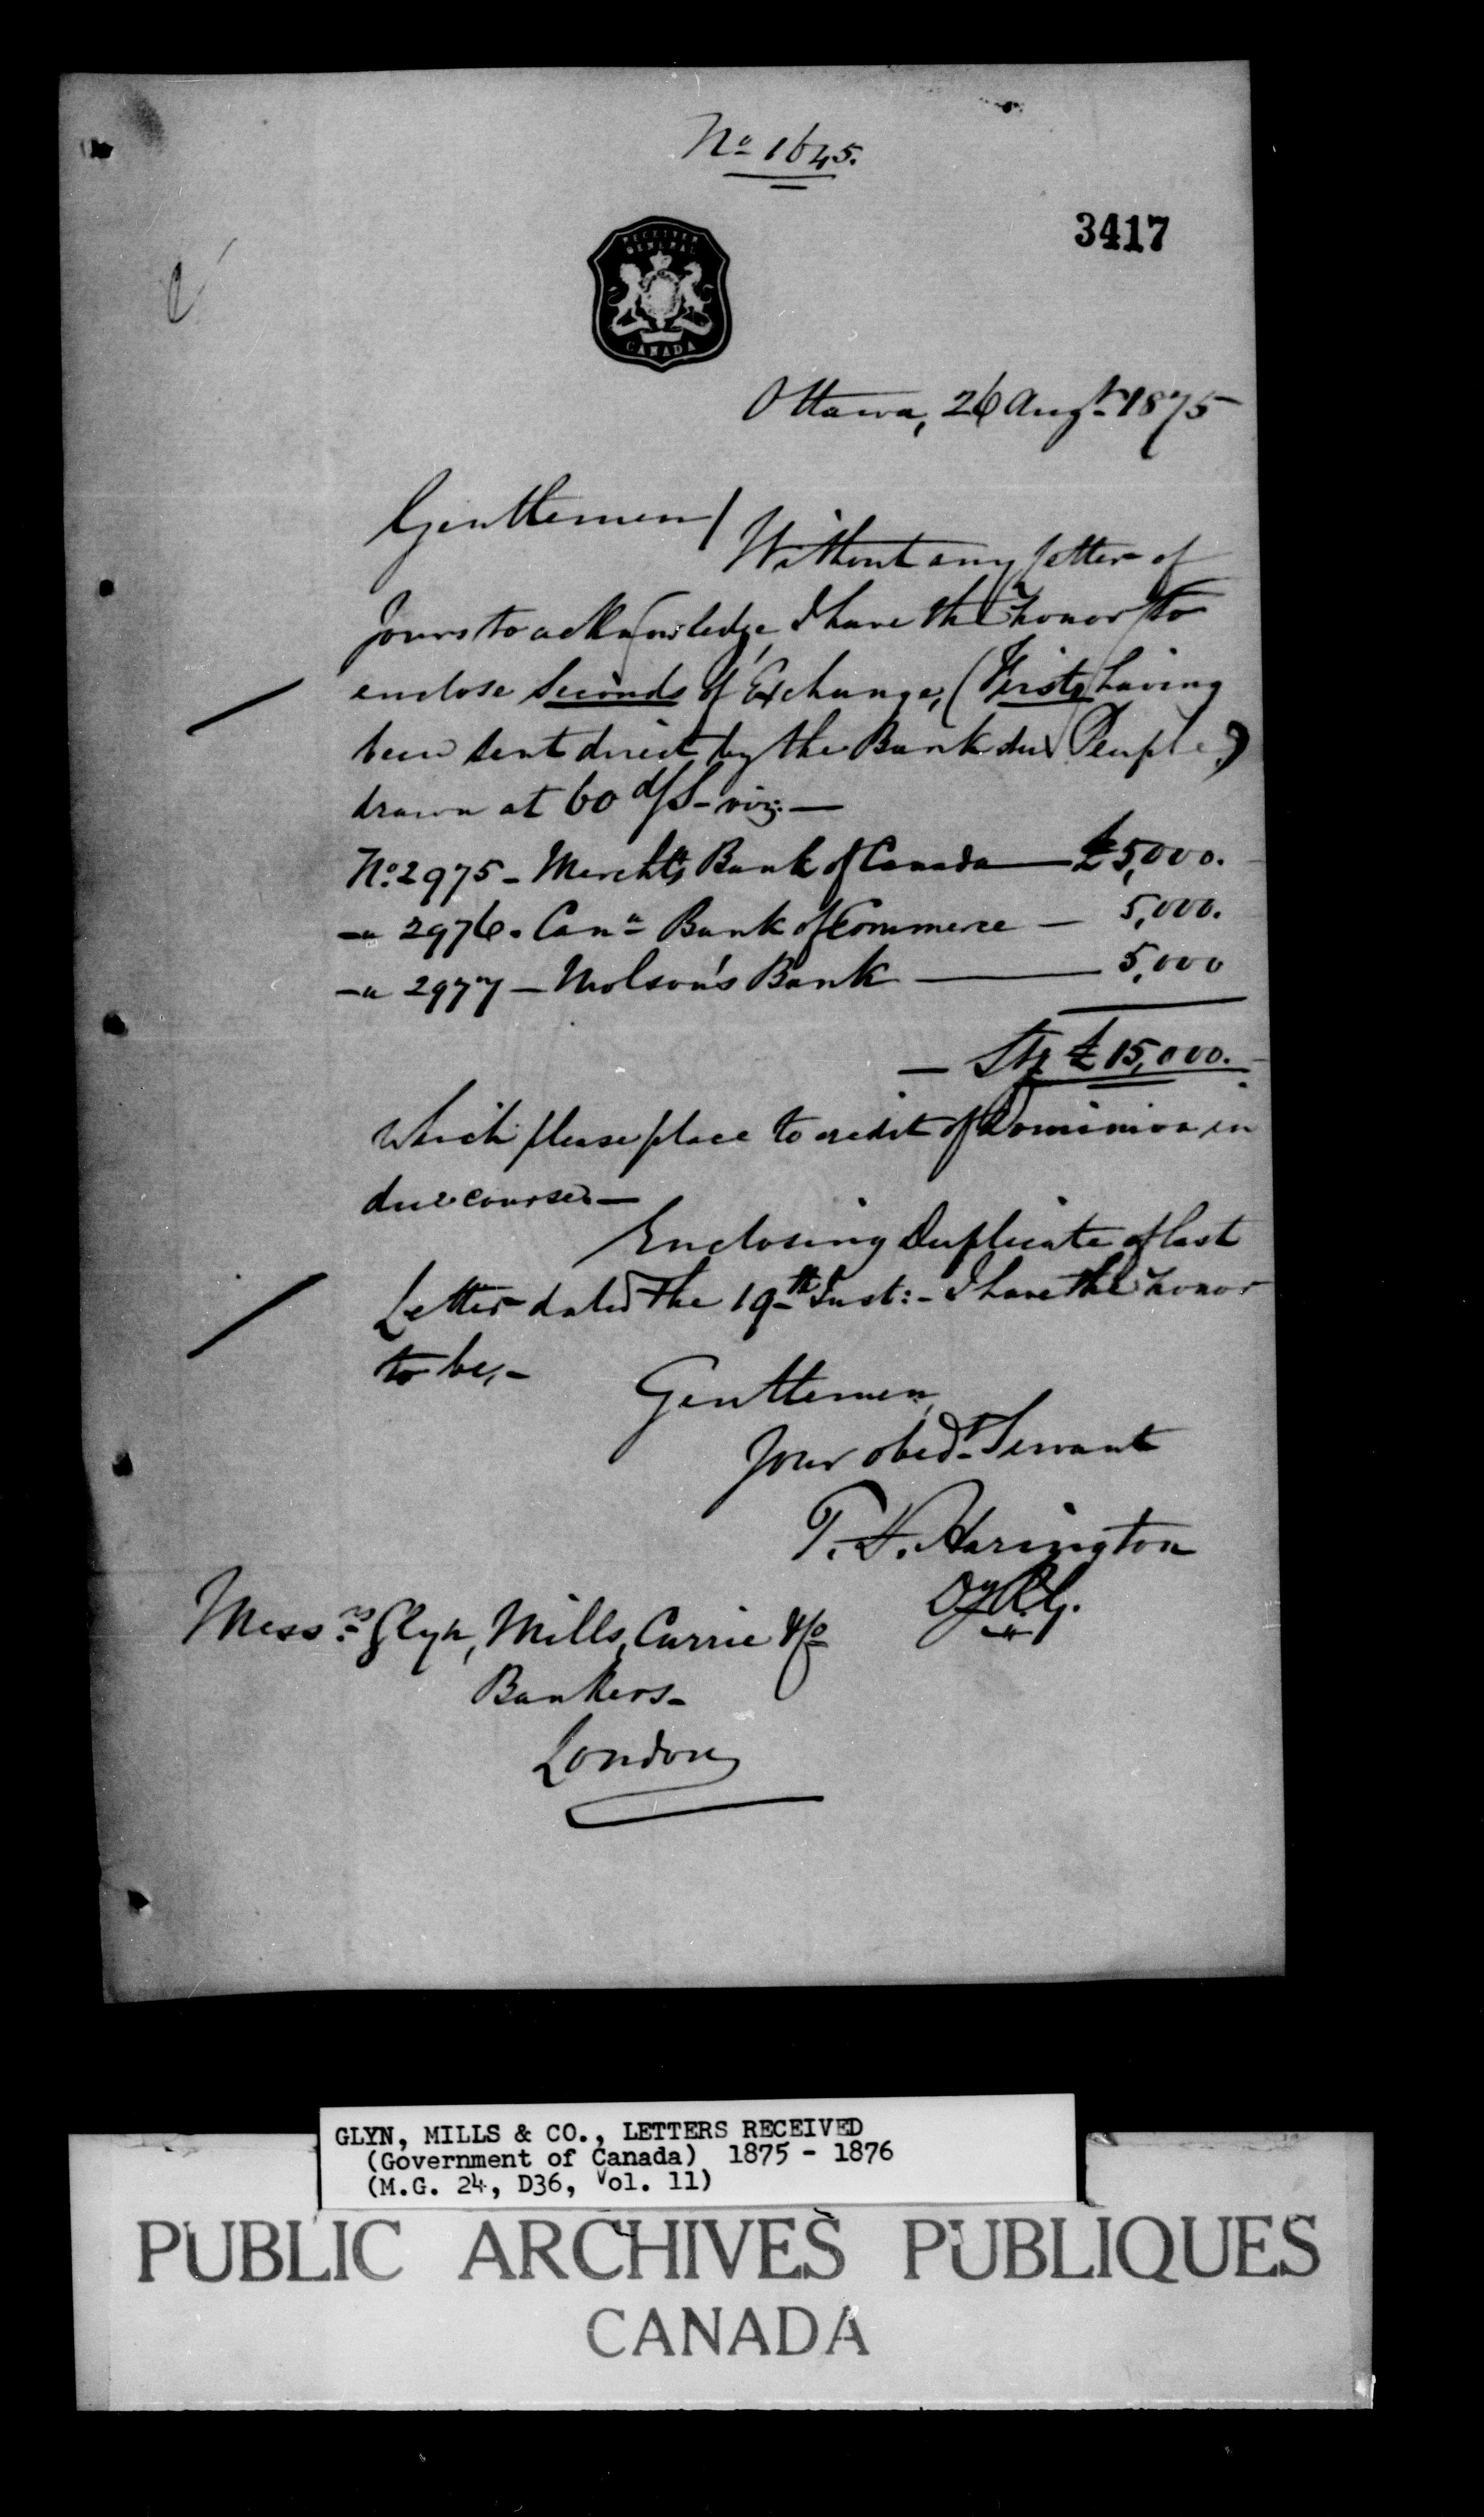 No 1645.
3417
RECEIVER
GENERAL
CANADA
Ottawa, 26 Augt 1875
Gentlemen/
Without any letter of
yours to acknowledge, I have the honor to
enclose Seconds of Exchange, (Firsts having
been sent direct by the Bank du Peuple,)
drawn at 60 d/S - viz: —
No. 2975 - Merchts Bank of Canada — £5,000.
-" 2976. Cana Bank of Commerce — 5,000.
-" 2977 — Molson's Bank — 5,000
— Stg £15,000.
which please place to credit of Dominion in
due course. —
Enclosing Duplicate of last
Letter dated the 19th Inst: - I have the honor
to be, -
Gentlemen,
Your obedt Servant
T. D. Harington
Dy R.G.
Messrs Glyn, Mills, Currie & Co
Bankers -
London
GLYN, MILLS & CO., LETTERS RECEIVED
(Government of Canada) 1875 - 1876
(M.G. 24, D36, Vol. 11)
PUBLIC ARCHIVES PUBLIQUES
CANADA